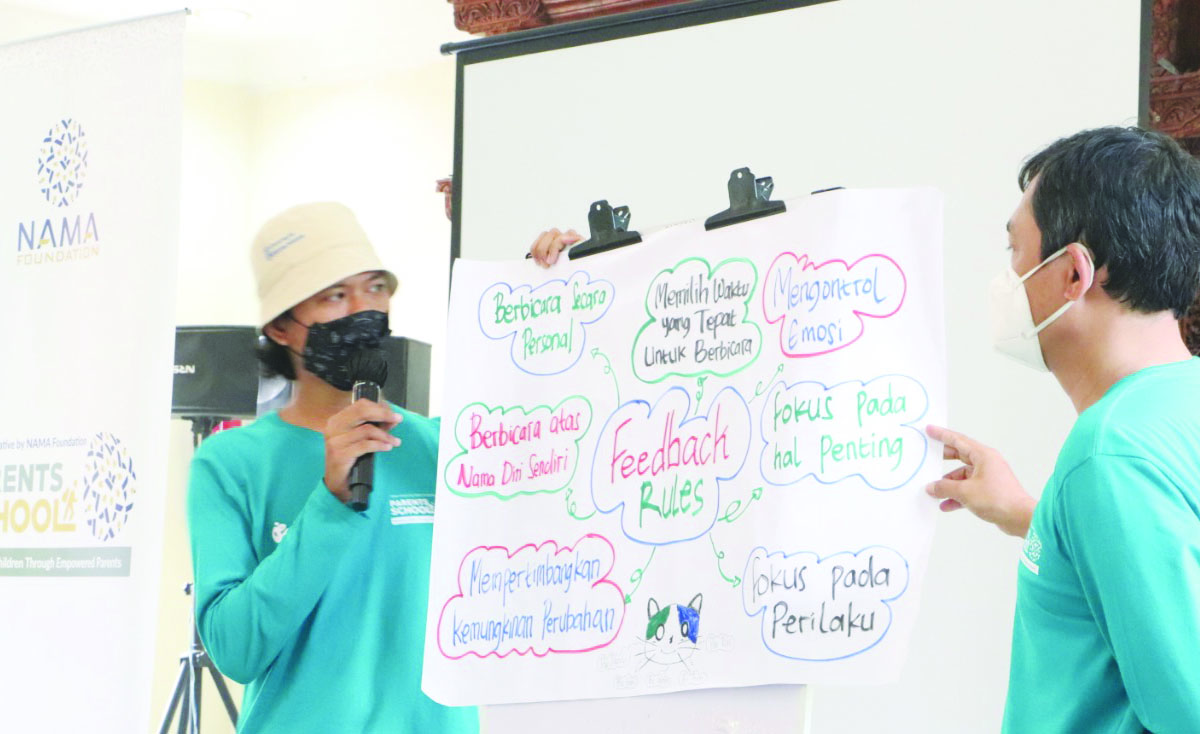 NAMA
FOUNDATION
ative by NAMA Foundation
RENTS
HOOL
hildren Through Empowered Parents
PARENTS
SCHOOL
Berbicara Secara
Personal
Memilih Waktu
yang Tepat
Untuk Berbicara
Mengontrol
Emosi
Berbicara atas
Nama Diri Sendiri
Feedback
Rules
Fokus pada
hal Penting
Mempertimbangkan
Kemungkinan Perubahan
Fokus pada
Perilaku